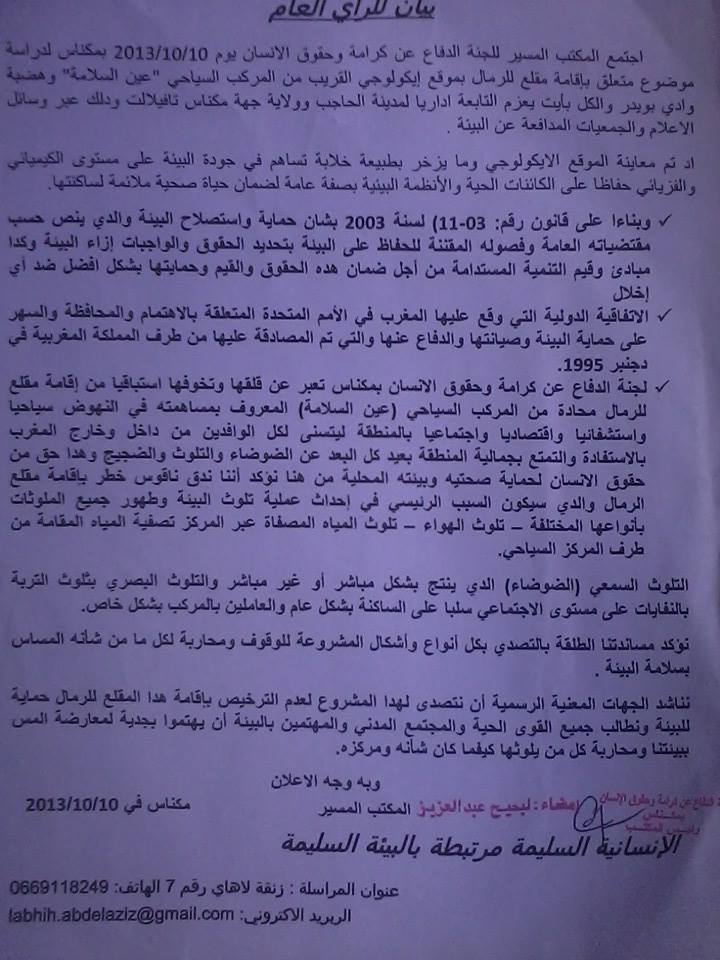 بيان للرأي العام
اجتمع المكتب المسير للجنة الدفاع عن كرامة وحقوق الانسان يوم 2013/10/10 بمكناس لدراسة
موضوع متعلق بإقامة مقلع للرمال بموقع إيكولوجي القريب من المركب السياحي "عين السلامة" وهضبة
وادي بويدر والكل بأيت يعزم التابعة اداريا لمدينة الحاجب وولاية جهة مكناس تافيلالت وذلك عبر وسائل
الاعلام والجمعيات المدافعة عن البيئة .
اد تم معاينة الموقع الايكولوجي وما يزخر بطبيعة خلابة تساهم في جودة البيئة على مستوى الكيميائي
والفزيائي حفاظا على الكائنات الحية والأنظمة البيئية بصفة عامة لضمان حياة صحية ملائمة لساكنتها.
✓ وبناءا على قانون رقم: 03-11) لسنة 2003 بشان حماية واستصلاح البيئة والدي ينص حسب
مقتضياته العامة وفصوله المقتنة للحفاظ على البيئة بتحديد الحقوق والواجبات إزاء البيئة وكدا
مبادئ وقيم التنمية المستدامة من أجل ضمان هده الحقوق والقيم وحمايتها بشكل افضل ضد أي
إخلال
✓ الاتفاقية الدولية التي وقع عليها المغرب في الأمم المتحدة المتعلقة بالاهتمام والمحافظة والسهر
على حماية البيئة وصيانتها والدفاع عنها والتي تم المصادقة عليها من طرف المملكة المغربية في
دجنبر 1995.
✓ لجنة الدفاع عن كرامة وحقوق الانسان بمكناس تعبر عن قلقها وتخوفها استباقيا من إقامة مقلع
للرمال محادة من المركب السياحي (عين السلامة) المعروف بمساهمته في النهوض سياحيا
واستشفائيا واقتصاديا واجتماعيا بالمنطقة ليتسنى لكل الوافدين من داخل وخارج المغرب
بالاستفادة والتمتع بجمالية المنطقة بعيد كل البعد عن الضوضاء والتلوث والضجيج وهدا حق من
حقوق الانسان لحماية صحتيه وبيئته المحلية من هنا نؤكد أننا ندق ناقوس خطر بإقامة مقلع
الرمال والدي سيكون السبب الرئيسي في إحداث عملية تلوث البيئة وظهور جميع الملوثات
بأنواعها المختلفة – تلوث الهواء – تلوث المياه المصفاة عبر المركز تصفية المياه المقامة من
طرف المركز السياحي.
التلوث السمعي (الضوضاء) الدي ينتج بشكل مباشر أو غير مباشر والتلوث البصري بتلوث التربة
بالنفايات على مستوى الاجتماعي سلبا على الساكنة بشكل عام والعاملين بالمركب بشكل خاص.
نؤكد مساندتنا الطلقة بالتصدي بكل أنواع وأشكال المشروعة للوقوف ومحاربة لكل ما من شأنه المساس
بسلامة البيئة .
نناشد الجهات المعنية الرسمية أن نتصدى لهدا المشروع لعدم الترخيص بإقامة هدا المقلع للرمال حماية
للبيئة ونطالب جميع القوى الحية والمجتمع المدني والمهتمين بالبيئة أن يهتموا بجدية لمعارضة المس
ببيئتنا ومحاربة كل من يلوثها كيفما كان شأنه ومركزه.
وبه وجه الاعلان
الدفاع عن كرامة وحقوق الإنسان
بمكناس
ورئيس المكتب
إمضاء : لبحيح عبد العزيز
المكتب المسير مكناس في 2013/10/10
الإنسانية السليمة مرتبطة بالبيئة السليمة
عنوان المراسلة : زنقة لاهاي رقم 7 الهاتف: 0669118249
الربريد الاكتروني: labhih.abdelaziz@gmail.com